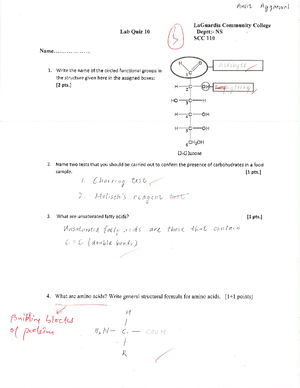 Amit Aggarwal
LaGuardia Community College
Lab Quiz 10
Deptt:- NS
SCC 110
3
Name..................
1. Write the name of the circled functional groups in
the structure given here in the assigned boxes:
[2 pts.]
Aldehyde
H
O
C
H
C
OH
HO
C
H
H
C
OH
H
C
OH
CH₂OH
D-Glucose
2. Name two tests that you should be carried out to confirm the presence of carbohydrates in a food
sample. [1 pts.]
1. Charring test
2. Molisch's reagent test
3. What are unsaturated fatty acids? [1 pts.]
Unsaturated fatty acids are those that contain
C=C (double bonds)
4. What are amino acids? Write general structural formula for amino acids. [1+1 points]
Building blocks
of proteins
H
H₂N — C — COOH
R